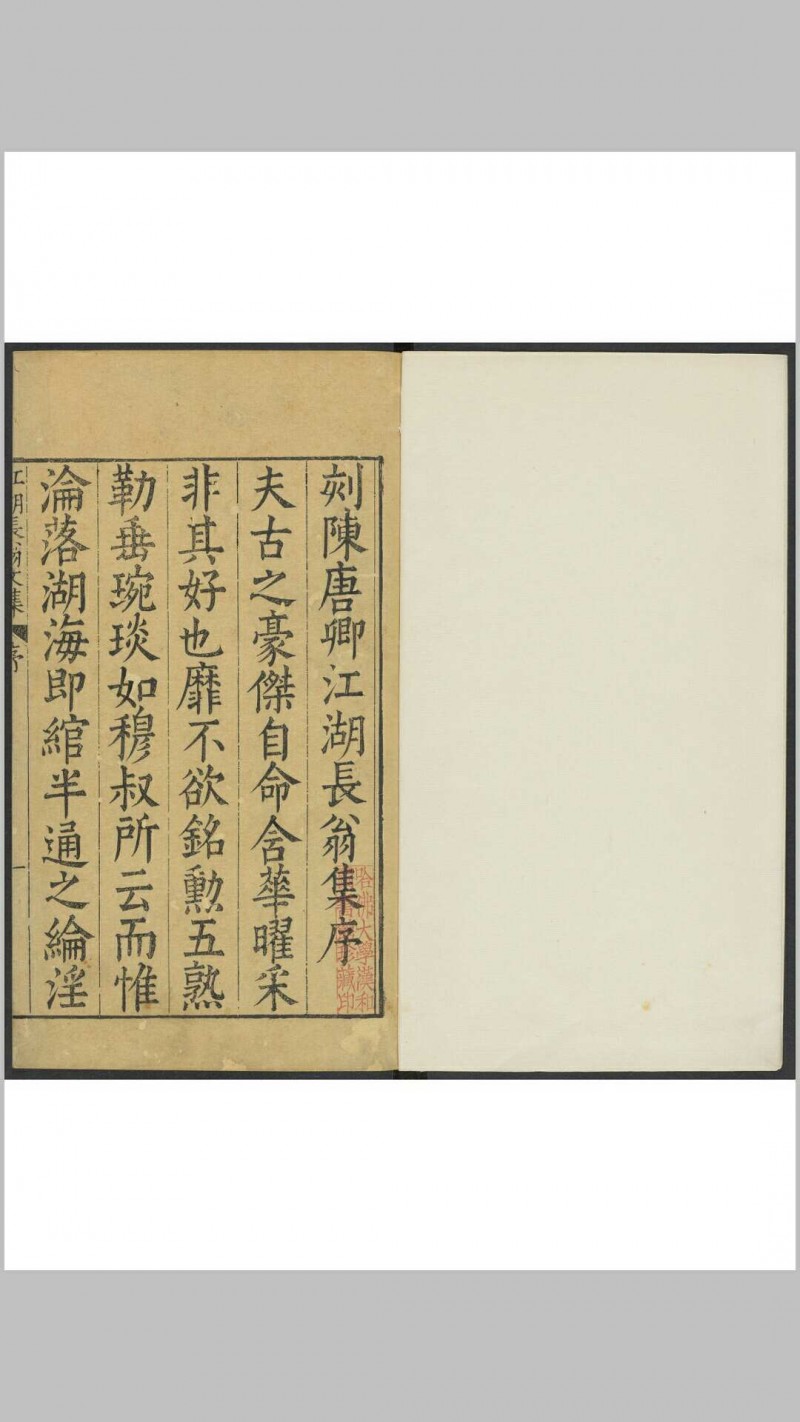 刻陳唐卿江湖長翁集序
夫古之豪傑自命含華曜采
非其好也靡不欲銘勲五熟
勒垂琬琰如穆叔所云而惟
淪落湖海即綰半通之綸淫
江湖長翁文集
序
一
哈佛大學漢和
圖書館珍藏印